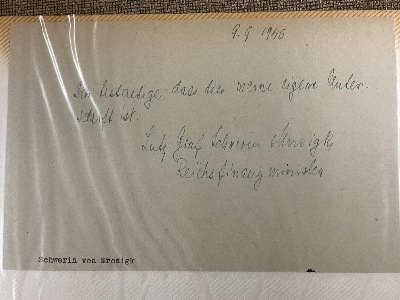 9.9.1946
Ich bestätige, dass dies meine eigene Unter-
schrift ist.
Lutz Graf Schwerin Krosigk
Reichsfinanzminister
Schwerin von Krosigk